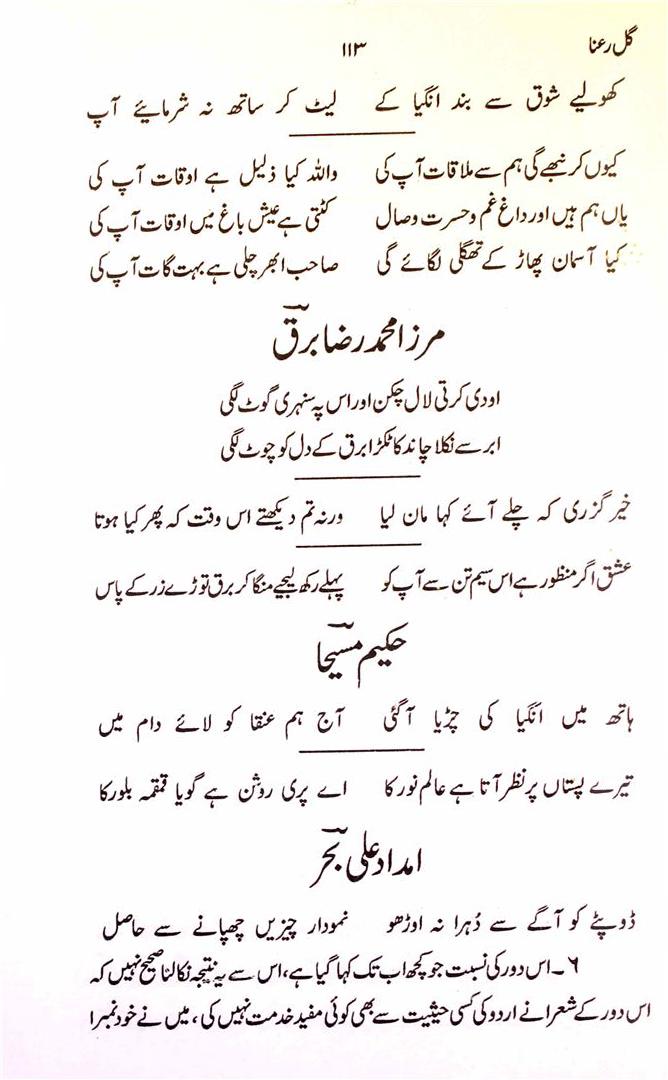 گل رعنا
۱۱۳
کھولیے شوق سے بند انگیا کے لیٹ کر ساتھ نہ شرمائیے آپ
کیوں کر نبھے گی ہم سے ملاقات آپ کی واللہ کیا ذلیل ہے اوقات آپ کی
یاں ہم ہیں اور داغ غم و حسرت وصال کٹتی ہے عیش باغ میں اوقات آپ کی
کیا آسمان پھاڑ کے تھگلی لگائے گی صاحب ابھر چلی ہے بہت گات آپ کی
مرزا محمد رضا برق
اودی کرتی لال چکن اور اس پہ سنہری گوٹ لگی
ابر سے نکلا چاند کا ٹکڑا برق کے دل کو چوٹ لگی
خیر گزری کہ چلے آئے کہا مان لیا ورنہ تم دیکھتے اس وقت کہ پھر کیا ہوتا
عشق اگر منظور ہے اس سیم تن سے آپ کو پہلے رکھ لیجیے منگا کر برق توڑے زر کے پاس
حکیم مسیحا
ہاتھ میں انگیا کی چڑیا آگئی آج ہم عنقا کو لائے دام میں
تیرے پستاں پر نظر آتا ہے عالم نور کا اے پری روشن ہے گویا قمقمہ بلور کا
امداد علی بحر
ڈوپٹے کو آگے سے دُہرا نہ اوڑھو نمودار چیزیں چھپانے سے حاصل
۶۔ اس دور کی نسبت جو کچھ اب تک کہا گیا ہے، اس سے یہ نتیجہ نکالنا صحیح نہیں کہ
اس دور کے شعرا نے اردو کی کسی حیثیت سے بھی کوئی مفید خدمت نہیں کی، میں نے خود نمبر۱